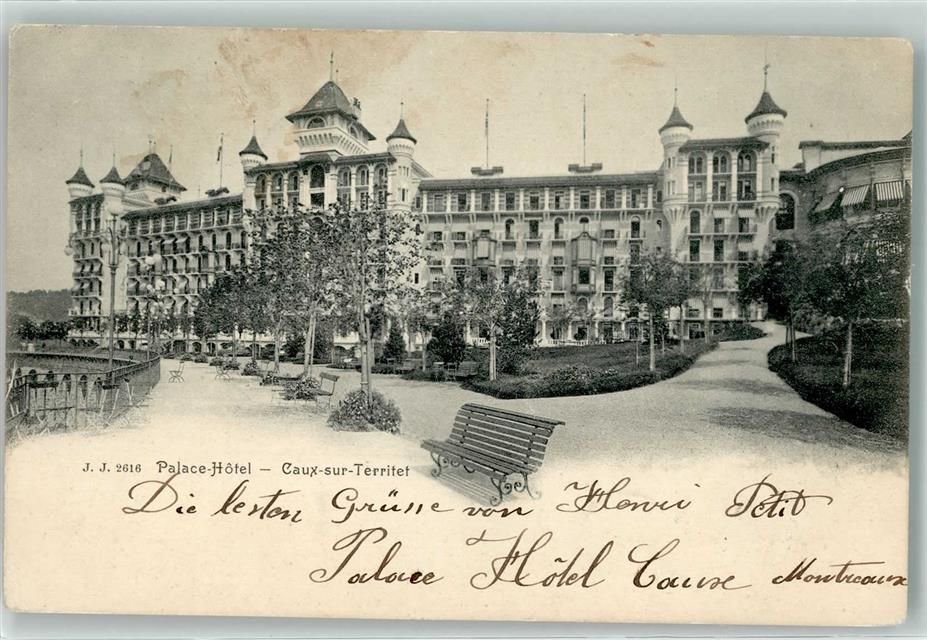 J. J. 2616 Palace-Hôtel – Caux-sur-Territet
Die besten Grüsse von Henri Petit
Palace Hôtel Caux Montreaux